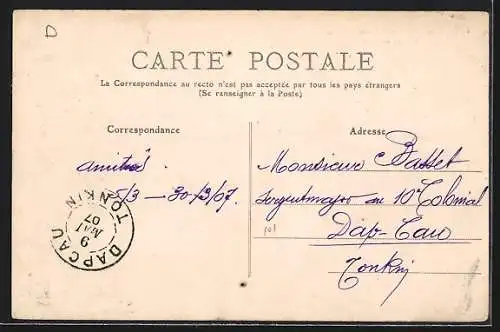 D
CARTE POSTALE
La Correspondance au recto n'est pas acceptée par tous les pays étrangers
(Se renseigner à la Poste)
Correspondance
Adresse
amitiés.
5/3 — 30/3/07.
Monsieur Basset
Sergent major au 10e Colonial
Dap-Cau
Tonkin
DAPCAU
TONKIN
9
MAI
07